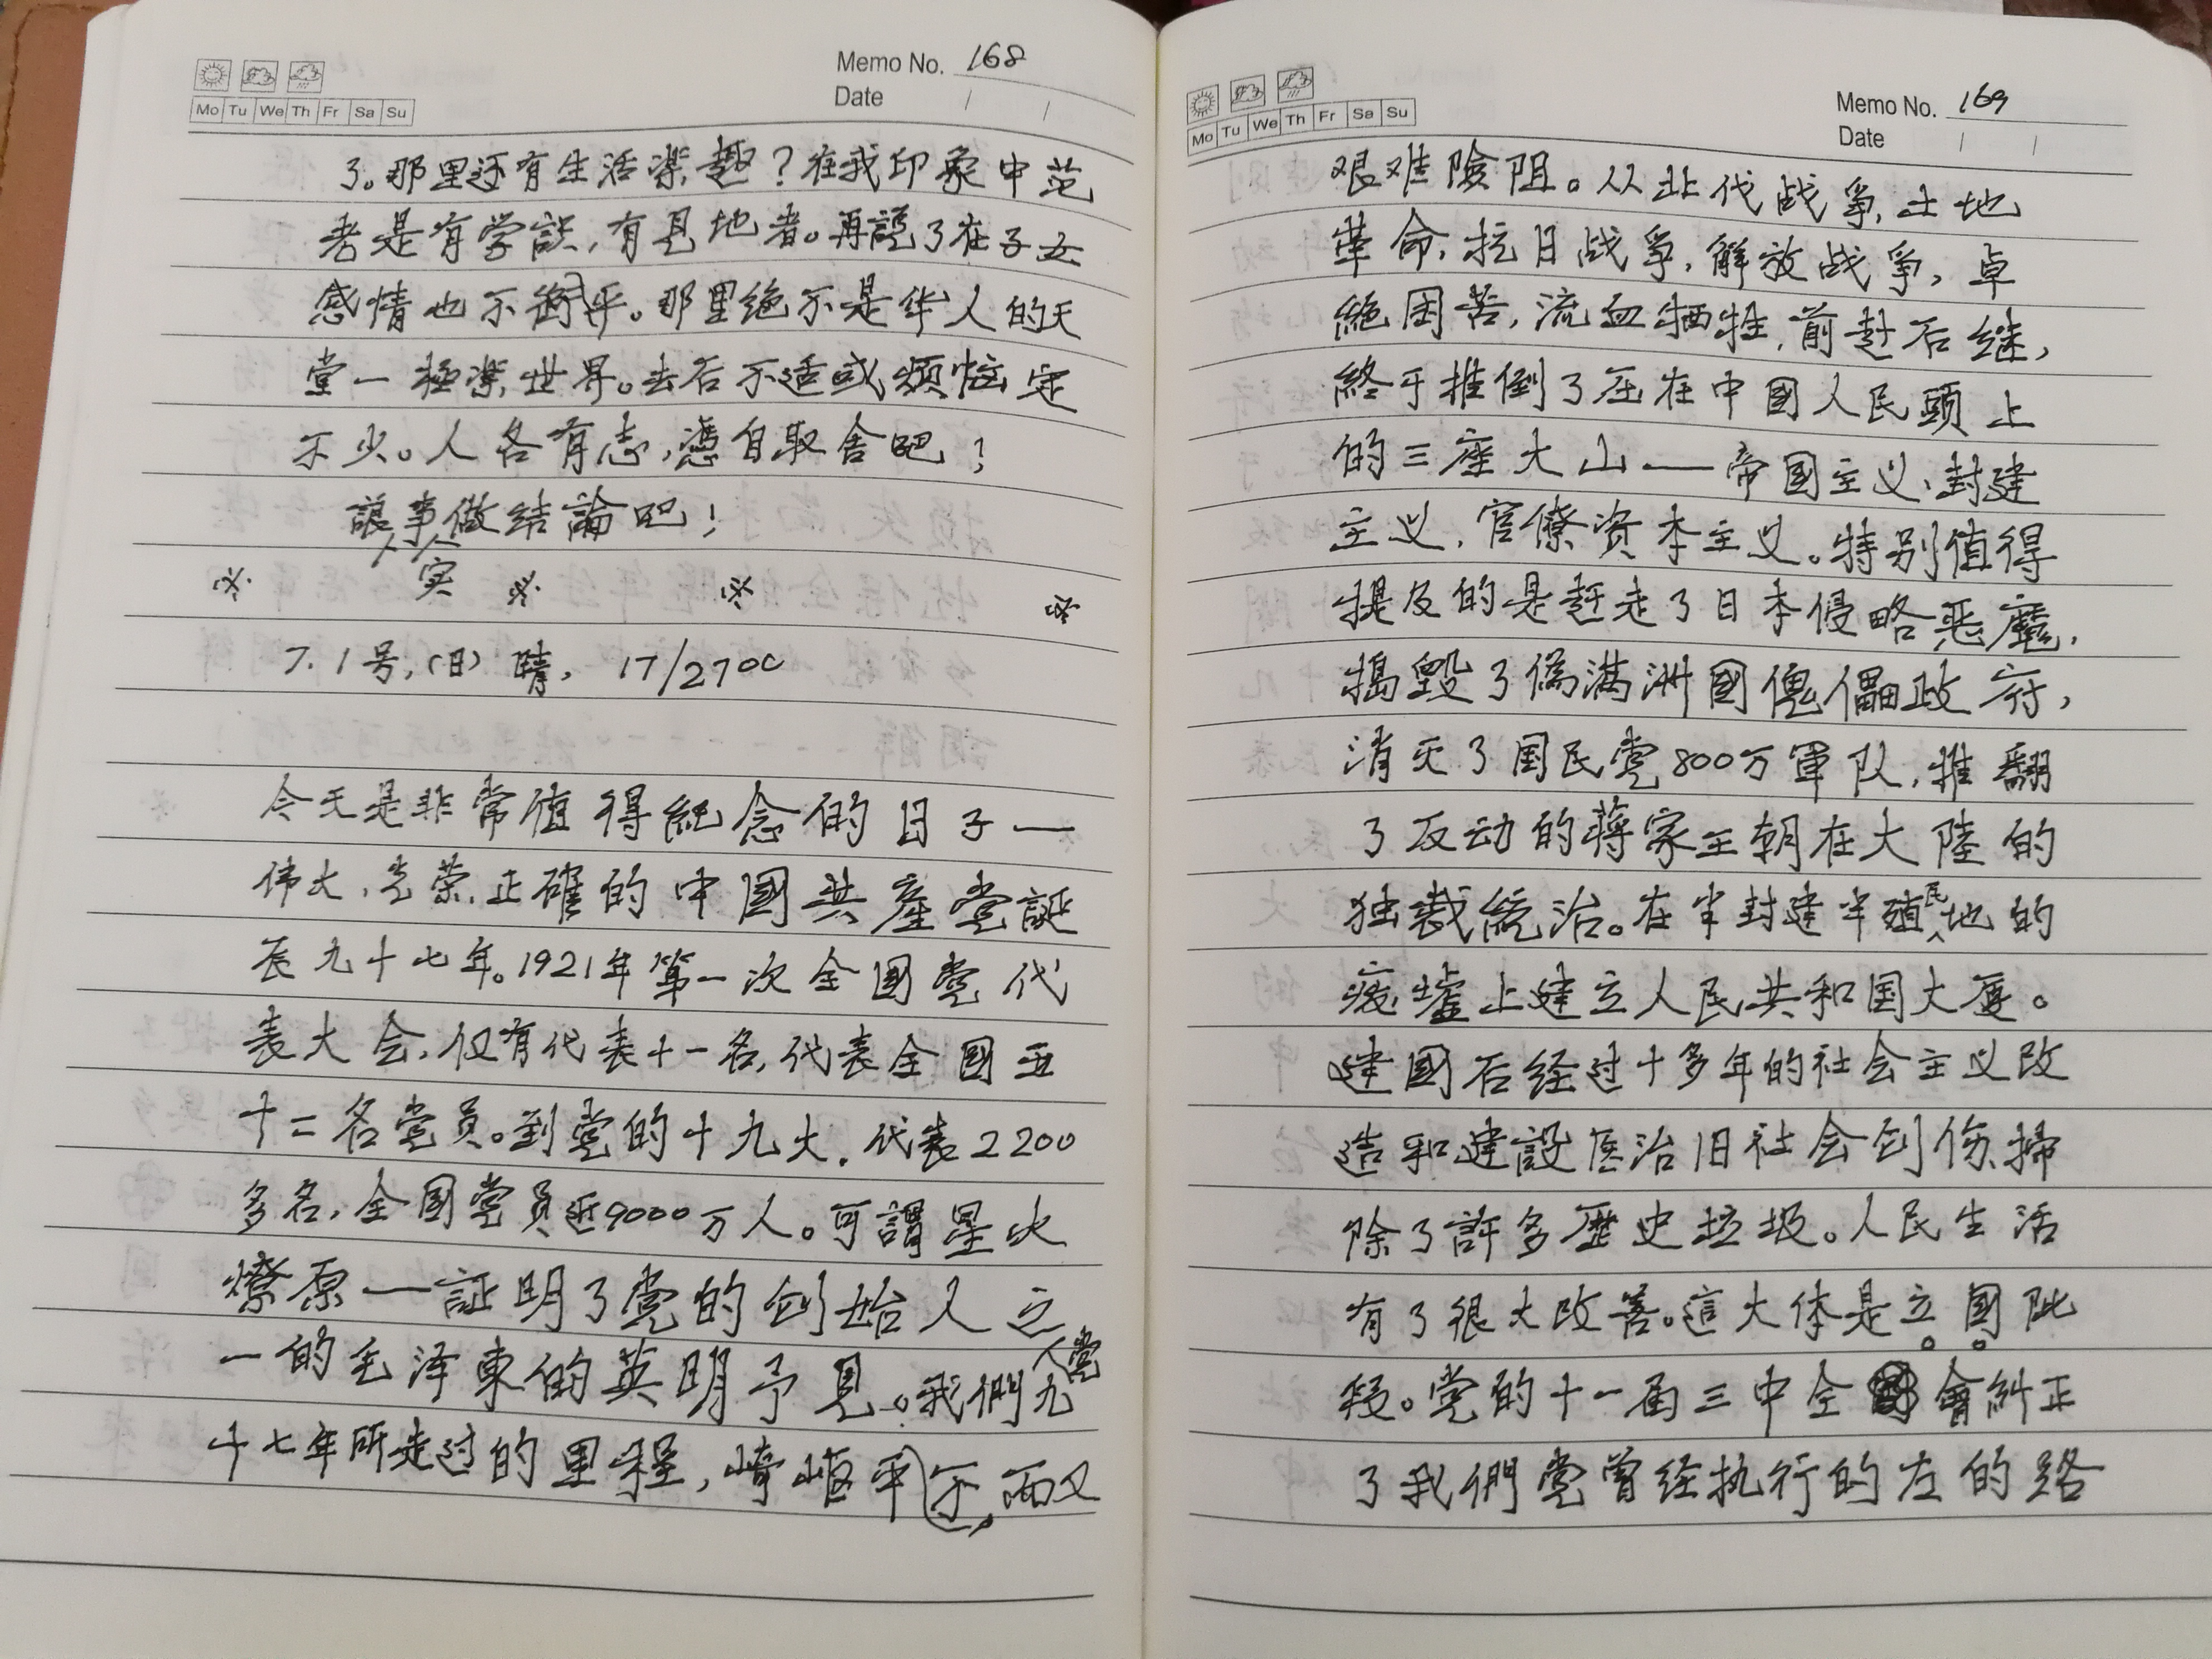 Memo No. 168
Mo Tu We Th Fr Sa Su
Date / /
了。那里还有生活樂趣？在我印象中范
老是有学識，有見地者。再説了在子女
感情也不衡平。那里绝不是华人的天
堂一極樂世界。去后不适或烦恼定
不少。人各有志，憑自取舍吧！
讓事实做结論吧！
※ ※ ※ ※
7.1号，(日) 晴， 17/27℃
今天是非常值得紀念的日子一
伟大、光荣、正確的中國共産党誕
辰九十七年。1921年第一次全國党代
表大会，仅有代表十一名，代表全國五
十二名党员。到党的十九大，代表2200
多名，全國党员近9000万人。可謂星火
燎原一証明了党的创始人之
一的毛泽東的英明予見。我們党九
十七年所走过的里程，崎岖平不，而又
Memo No. 169
Mo Tu We Th Fr Sa Su
Date / /
艰难險阻。从北伐战爭，土地
革命，抗日战爭，解放战爭，卓
絶困苦，流血牺牲，前赴后继，
終于推倒了压在中國人民頭上
的三座大山——帝國主义、封建
主义，官僚资本主义。特别值得
提及的是赶走了日本侵略恶魔，
搗毁了偽满洲國傀儡政府，
消灭了国民党800万軍队，推翻
了反动的蒋家王朝在大陸的
独裁統治。在半封建半殖民地的
废墟上建立人民共和国大厦。
建國后经过十多年的社会主义改
造和建設医治旧社会创伤，掃
除了許多歷史垃圾。人民生活
有了很大改善。這大体是立國阶
段。党的十一届三中全會糾正
了我們党曾经执行的左的路